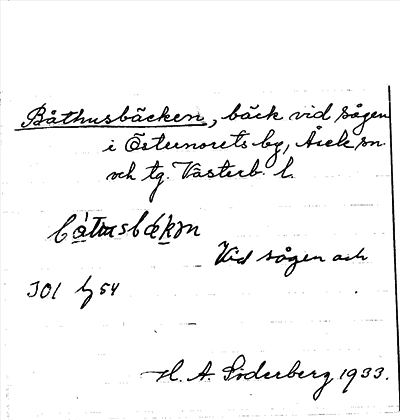 Båthusbäcken, bäck vid sågen
i Östernorets by, Åsele sn
och tg. Västerb. l.
Vid sågen och
JO1 by 54
H. A. Söderberg 1933.